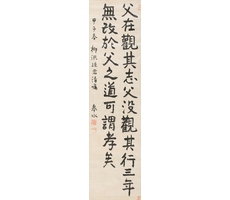 父在觀其志父没觀其行三年
無改於父之道可謂孝矣
甲子春